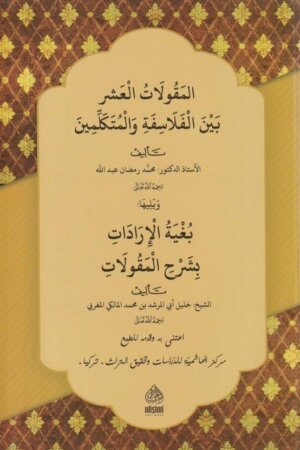 المَقُولَاتُ العَشر
بَيْنَ الْفَلَاسِفَةِ وَالْمُتَكَلِّمِينَ
تأليف
الأستاذ الدكتور: محمَّد رمضان عبد الله
رَحِمَهُ اللهُ تَعَالَى
وَيَلِيهَا:
بُغْيَةُ الْإِرَادَاتِ
بِشَرْحِ الْمَقُولَاتِ
تأليف
الشيخ: خليل أبي المرشد بن محمد المالكي المغربي
رَحِمَهُ اللهُ تَعَالَى
اعتنى به وقدمه للطبع
مركز الهاشمية للدراسات وتحقيق التراث. تركيا.
HAŞİMİ